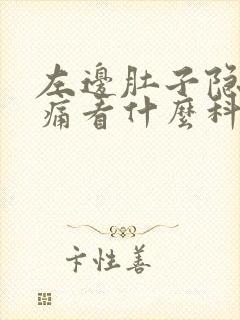 左邊肚子隐
痛看什麼科
卞性善